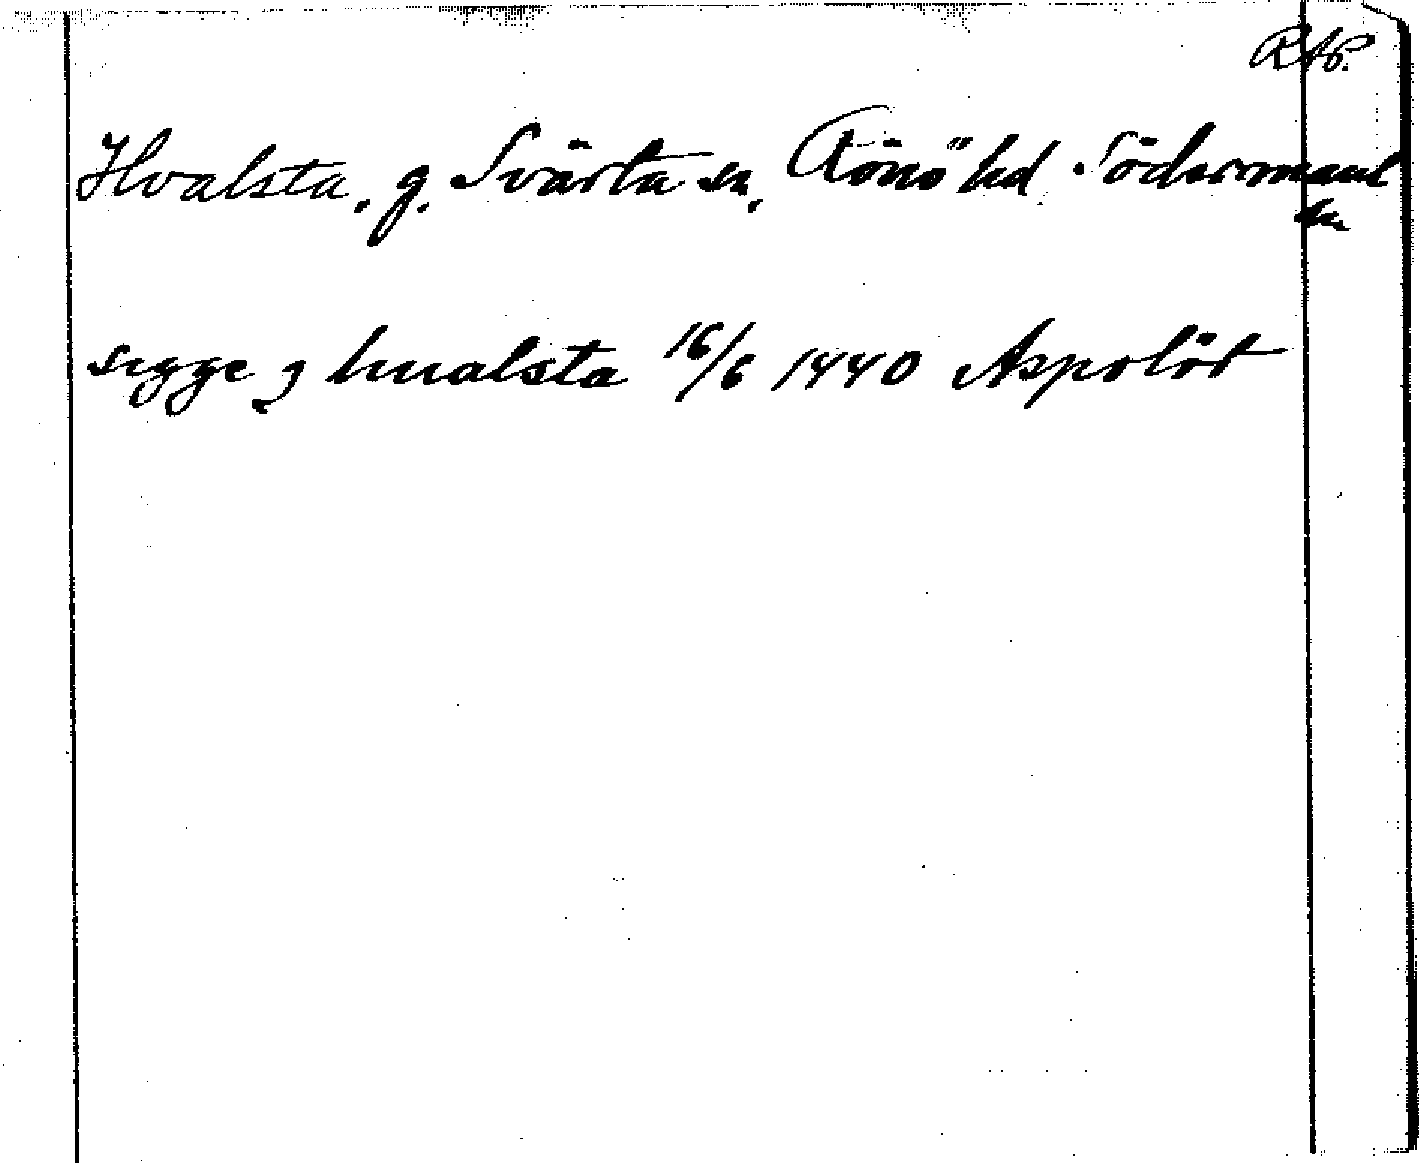 RAP.
Hvalsta, g. Svärta sn, Rönö hd Södermanl
ln
sigge j hualsta 16/6 1440 Aspolöt